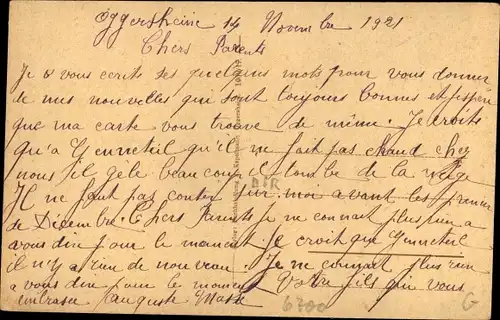 Oggersheim 14 Novembre 1921
Chers Parents
Je vous ecrits ses quelques mots pour vous donner
de mes nouvelles qui sont toujours bonnes et j'espere
que ma carte vous trouve de même. Je croits
qu'a Yenneteil qu'il ne fait pas chaud chez
nous il géle beaucoup il tombe de la neige
Il ne faut pas conter sur moi avant les premier
de Décembre. Chers Parents je ne connait plus rien a
vous dire pour le moment. Je croit que Yenneteil
il n'y a rien de nouveau. Je ne connait plus rien
a vous dire pour le moment Votre fils qui vous
embrasse Auguste
6700